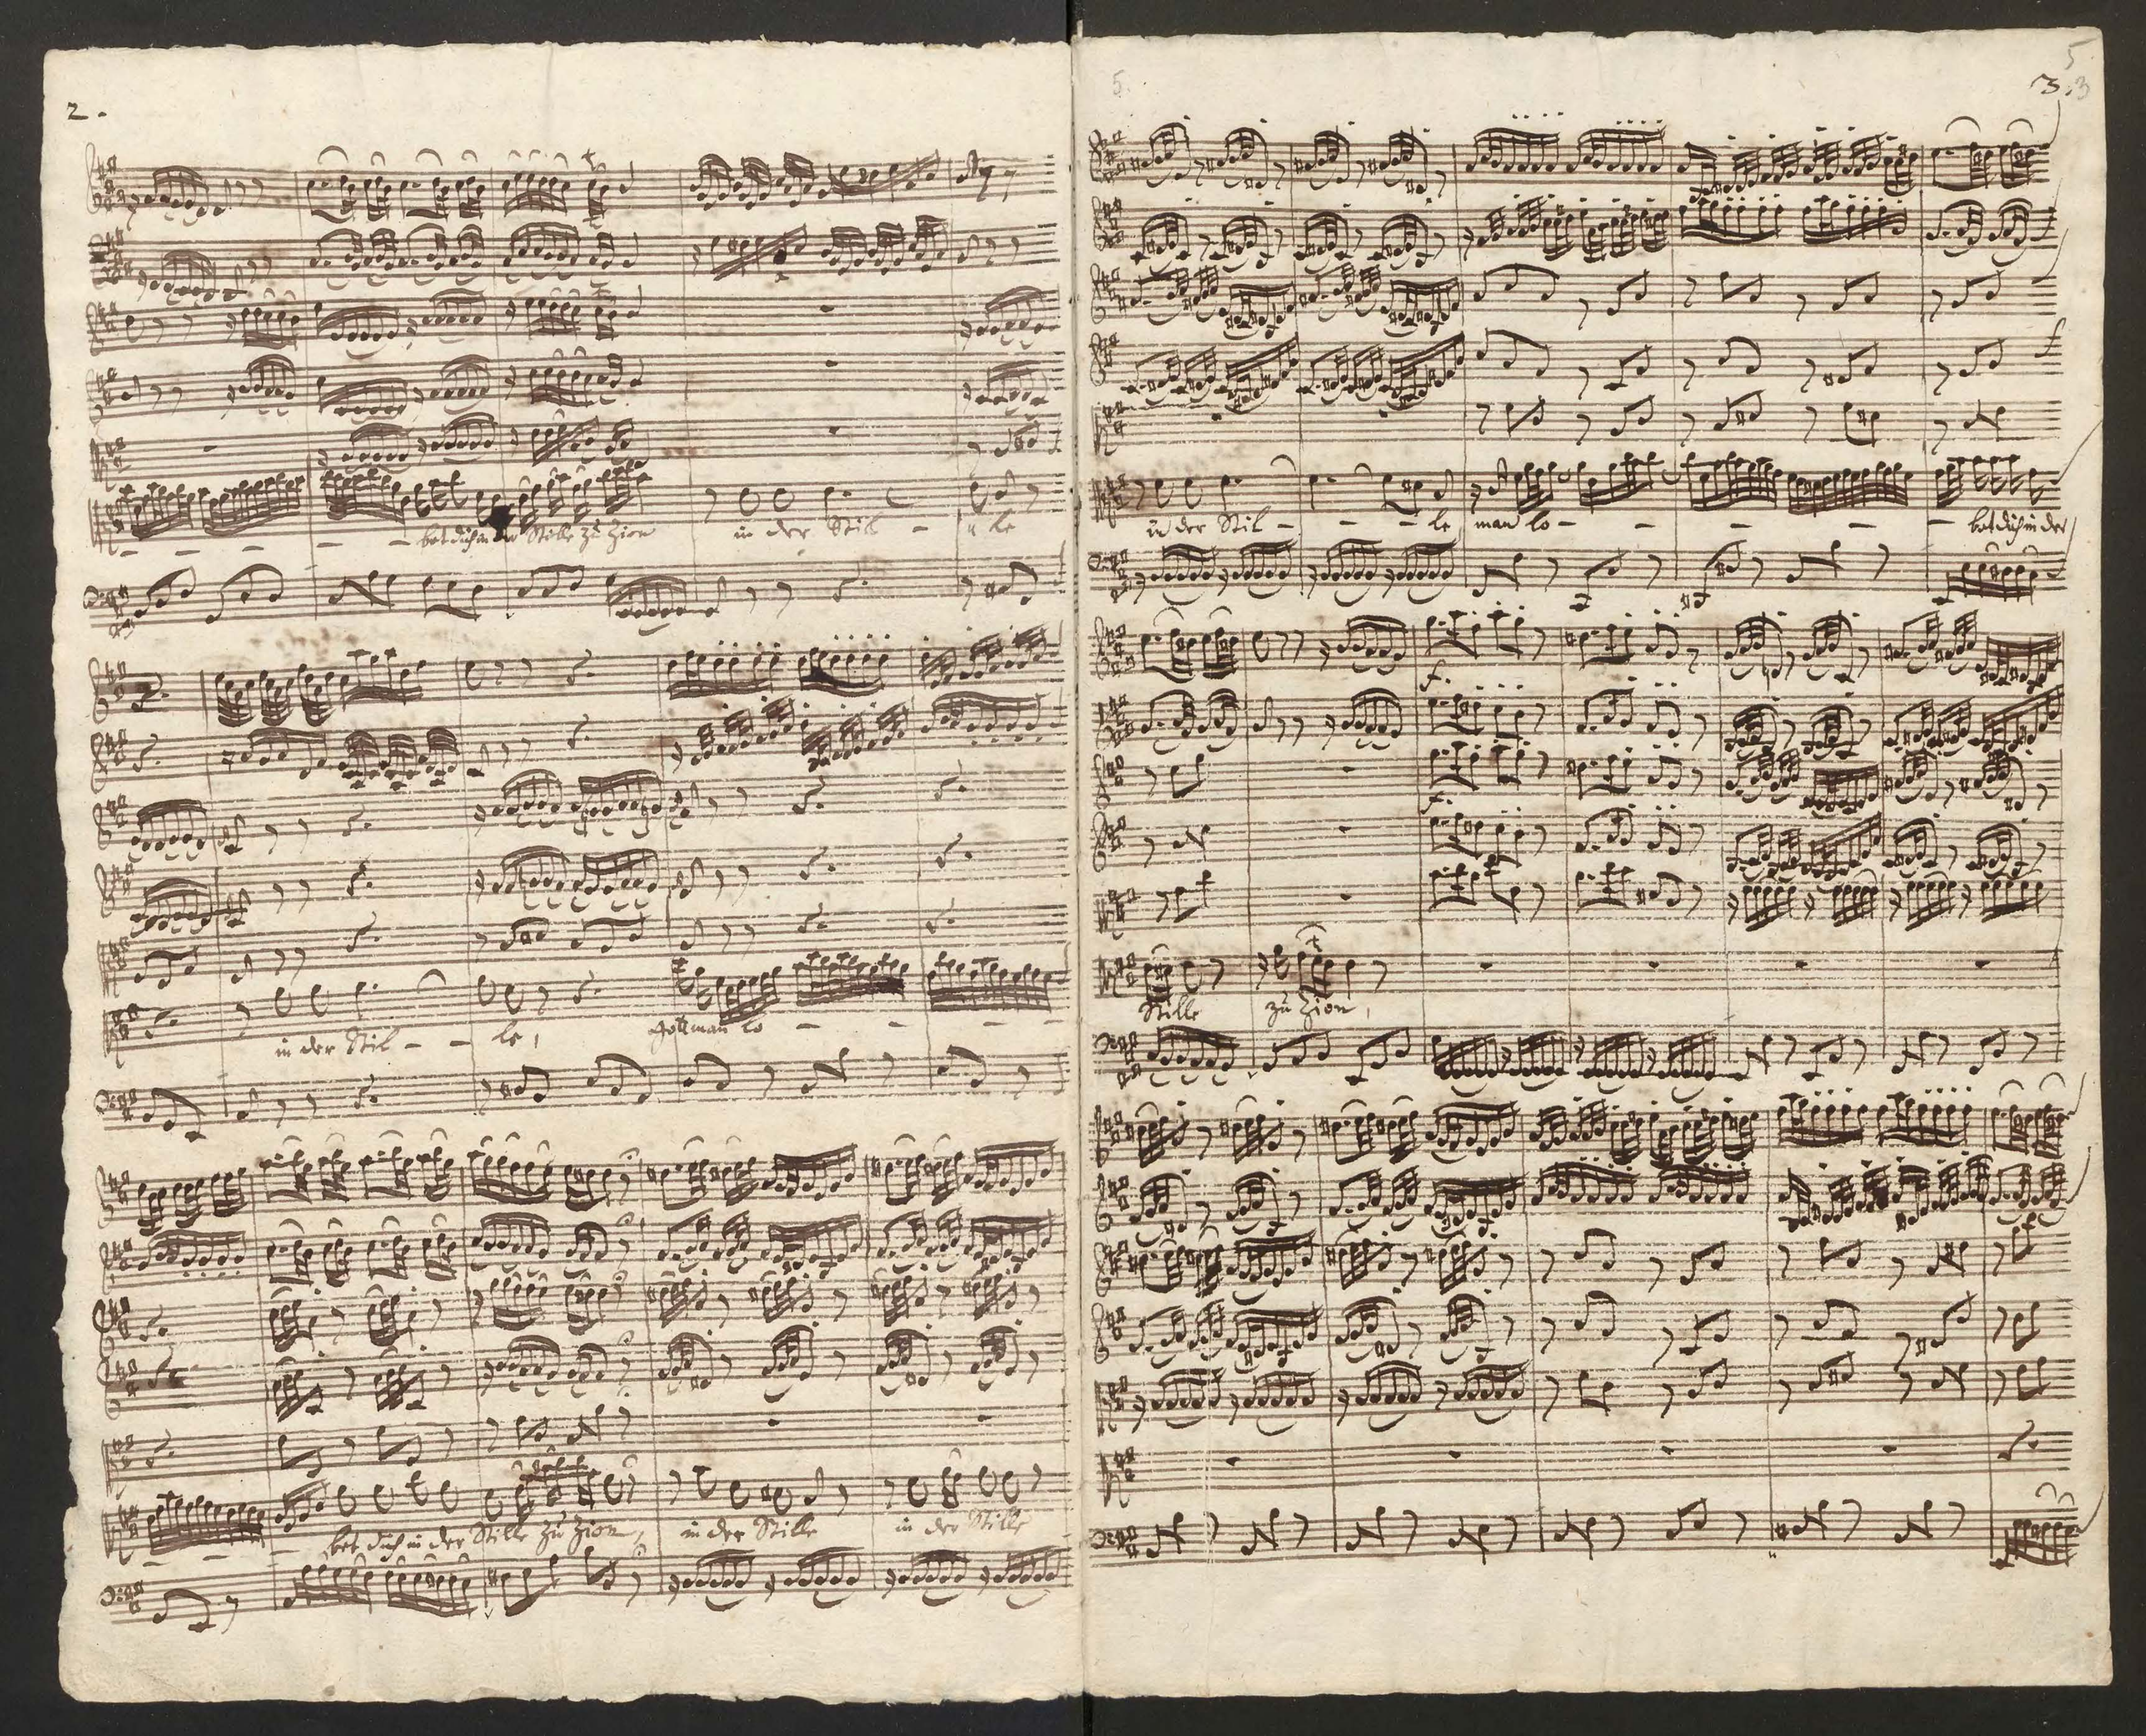 2.
bet dich in der Stille zu Zion in der Stil - le
in der Stil - - le, Gott man lo - - -
- - - bet dich in der Stille zu Zion, in der Stille in der Stille
5
5. 3. 3
in der Stil - - - le man lo - - - - - bet dich in der
f.
f.
Stille zu Zion,